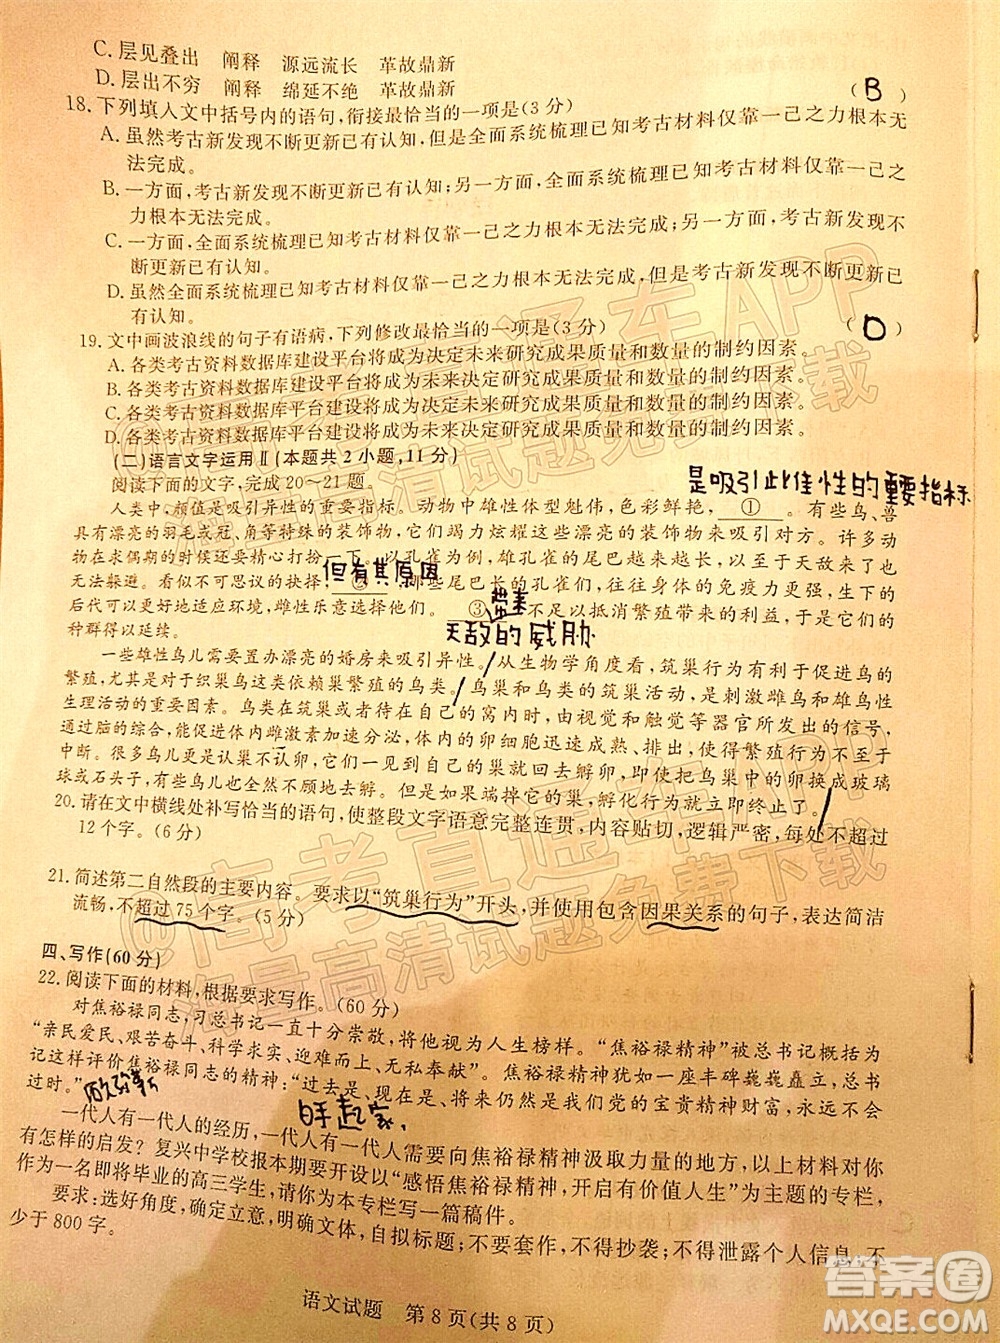 C. 层见叠出　阐释　源远流长　革故鼎新
D. 层出不穷　阐释　绵延不绝　革故鼎新
18. 下列填入文中括号内的语句,衔接最恰当的一项是(3分)　(B)
A. 虽然考古发现不断更新已有认知,但是全面系统梳理已知考古材料仅靠一己之力根本无
法完成。
B. 一方面,考古新发现不断更新已有认知;另一方面,全面系统梳理已知考古材料仅靠一己之
力根本无法完成。
C. 一方面,全面系统梳理已知考古材料仅靠一己之力根本无法完成;另一方面,考古发现不
断更新已有认知。
D. 虽然全面系统梳理已知考古材料仅靠一己之力根本无法完成,但是考古新发现不断更新
已有认知。
19. 文中画波浪线的句子有语病,下列修改最恰当的一项是(3分)　(D)
A. 各类考古资料数据库建设平台将成为决定未来研究成果质量和数量的制约因素。
B. 各类考古资料数据库建设平台将成为未来决定研究成果质量和数量的制约因素。
C. 各类考古资料数据库平台建设将成为决定未来研究成果质量和数量的制约因素。
D. 各类考古资料数据库平台建设将成为未来决定研究成果质量和数量的制约因素。
(二)语言文字运用Ⅱ(本题共2小题,11分)
阅读下面的文字,完成20～21题。
是吸引此雌性的重要指标
人类中,颜值是吸引异性的重要指标。动物中雄性体型魁伟,色彩鲜艳,　①　。有些鸟、兽
具有漂亮的羽毛或冠、角等特殊的装饰物,它们竭力炫耀这些漂亮的装饰物来吸引对方。许多动物
在求偶期的时候还要精心打扮一下。以孔雀为例,雄孔雀的尾巴越来越长,在遇到天敌的时候
无法躲避。看似不可思议,　②　。那些尾巴长的孔雀们,往往身体的免疫力更强,生下的
但有其原因
后代可以更好地适应环境,雌性乐意选择他们。　③　不足以抵消繁殖带来的利益,
天敌的威胁
种群得以延续。
一些雄性鸟儿需要置办漂亮的婚房来吸引异性。从生物学角度看,筑巢行为促进鸟的
繁殖,尤其是对于织巢鸟这类依赖巢繁殖的鸟类。鸟巢和鸟类的筑巢活动,是刺激雌鸟和雄鸟性
生理活动的重要因素。当鸟类在筑巢或者待在自己的窝内时,由视觉和触觉等器官所发出的信号,
通过脑的综合,能促进体内雌激素加速分泌,体内的卵细胞迅速成熟、排出,使得繁殖行为不至于
中断。很多鸟儿只认巢不认卵;把它们的卵拿走,它们会继续孵化空巢,如果把鸟巢中的卵换成玻璃
球或石头子,有些鸟儿照孵不误。但是如果端掉它的巢,孵化行为就立即终止了。
20. 请在文中横线处补写恰当的语句,使整段文字语意完整连贯,内容贴切,逻辑严密,每处不超过
12个字。(6分)
21. 简述第二自然段的主要内容。要求以“筑巢行为”开头,并使用包含因果关系的句子,表达简洁
流畅,不超过75个字。(5分)
四、写作(60分)
22. 阅读下面的材料,根据要求写作。(60分)
对焦裕禄同志,习总书记一直十分崇敬,将他视为人生榜样。“焦裕禄精神”被总书记概括为
“亲民爱民、艰苦奋斗、科学求实、迎难而上、无私奉献”。焦裕禄如一座丰碑巍巍矗立,总书
记这样评价焦裕禄同志的精神:“过去是、现在是、将来仍然是我们党的宝贵精神财富,永远不会
过时。”
白手起家,
一代人有一代人的经历,一代人有一代人需要向焦裕禄精神汲取力量的地方,以上材料对你
有怎样的启发?复兴中学校报本期要开设以“感悟焦裕禄精神,开启有价值人生”为主题的专栏,
作为一名即将毕业的高三学生,请你为本专栏写一篇稿件。
要求:选好角度,确定立意,明确文体,自拟标题;不要套作,不得抄袭;不得泄露个人信息;不
少于800字。
语文试题　第8页(共8页)
@高考直通车APP
海量高清试题免费下载
@高考直通车APP
海量高清试题免费下载
答案圈
MXQE.COM